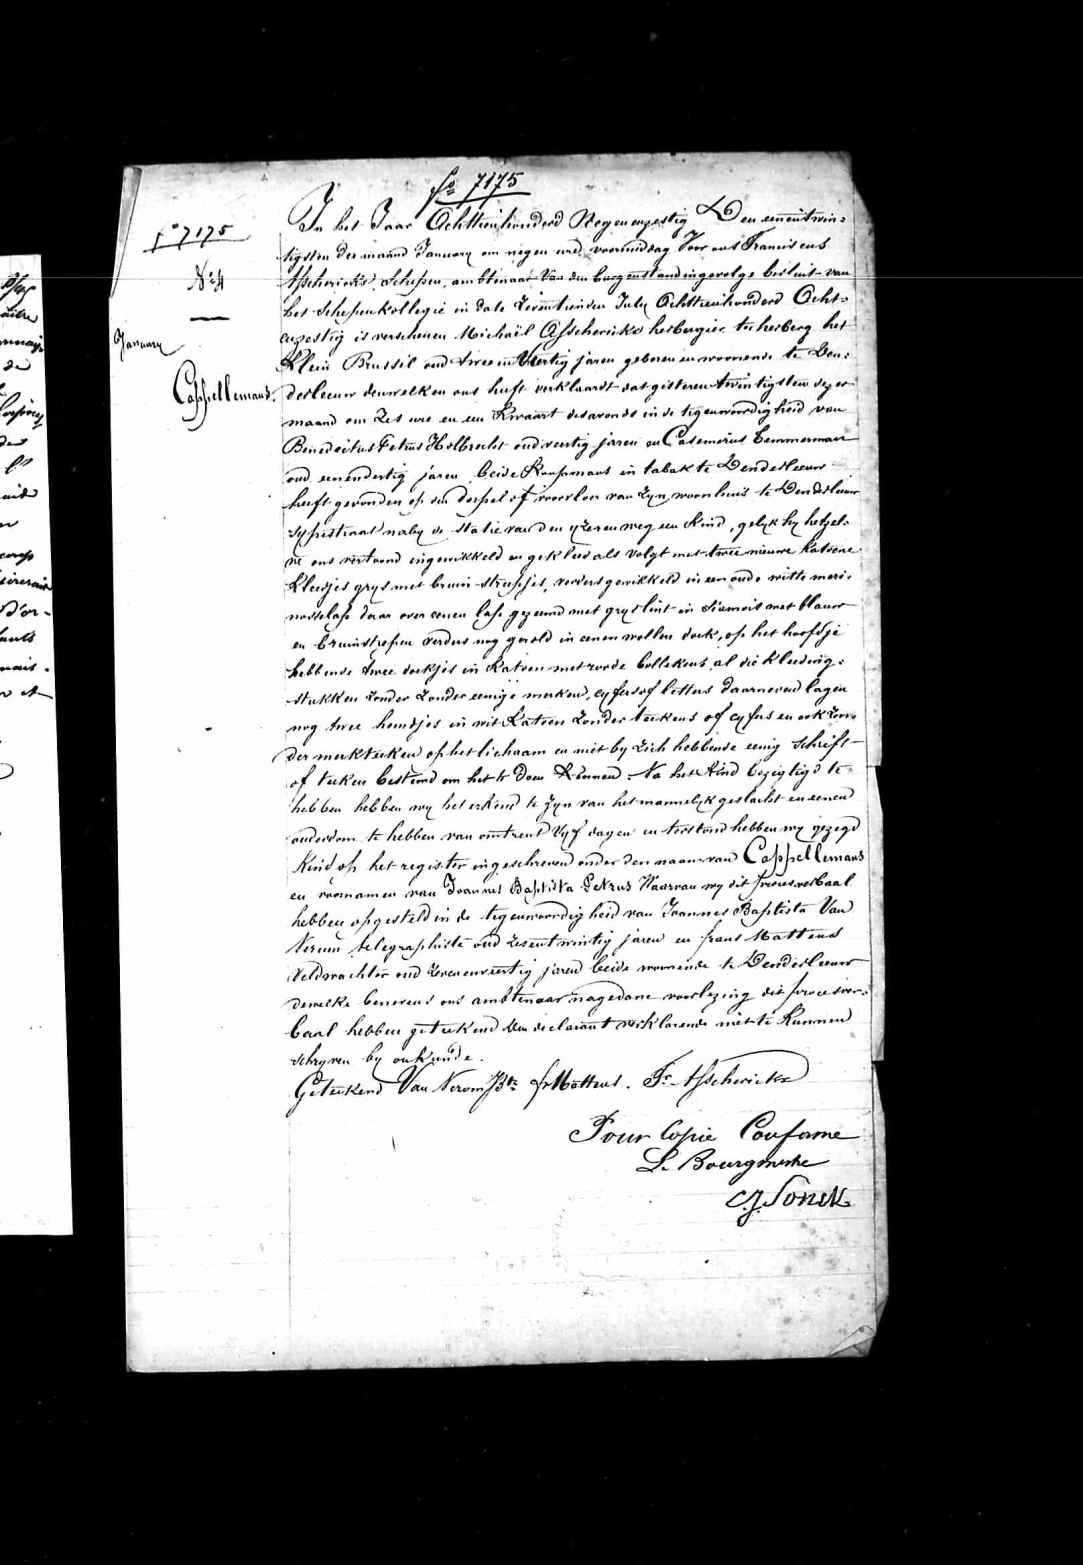 fo 7175
fo 7175
No 4
January
Cappellemans.
In het Jaar Achttienhonderd Negenenzestig Den eenentwin:
tigsten der maand January om negen uren voormiddag Voor ons Franciscus
Asscherickx Schepen, ambtenaar Van den burgerstand ingevolge besluit van
het Schepenkollegie in date Zeventienden July Achttienhonderd Acht=
enzestig is verschenen Michaël Asscherickx herbergier ter herberg het
Klein Brussel oud twee en Veertig jaren geboren en woonende te Den:
derleeuw denwelken ons heeft verklaardt dat gisteren twintigsten dezer
maand om Zes ure en een Kwaart desavonds in de tegenwoordigheid van
Benedictus Petrus Holbrecht oud veertig jaren en Casemirus Temmerman
oud eenendertig jaren beide Koopmans in tabak te Denderleeuw
heeft gevonden op den dorpel of voorvloer van Zyn woonhuis te Denderleeuw
dypestraat naby de statie van den yzerenweg een Kind, gelyk hy hetzel:
ve ons vertoond ingewikkeld en gekleed als volgt met twee nieuwe katoene
Kleedjes grys met bruin streepjes, verders gewikkeld in een oude witte meri:
nosselap daar over eenen lap gezoomd met grys lint in siamois met blauw
en bruinstrepen verders nog gerold in eenen wollen doek, op het hoofdje
hebbende twee doekjes in Katoen met roode bollekens, al die kleeding:
stukken Zonder Zonder eenige merken, cyfers of letters daarneven lagen
nog twee hemdjes in wit Katoen Zonder teekens of cyfers en ook Zon:
der merkteeken op het lichaam en niet by Zich hebbende eenig schrift
of teeken bestemd om het te doen Kennen. Na het Kind bezigtigd te
hebben hebben wy het erkend te Zyn van het mannelyk geslacht en eenen
ouderdom te hebben van omtrent Vyf dagen en terstond hebben wy gezegd
Kind op het register ingeschreven onder den naam van Cappellemans
en voornamen van Joannes Baptista Petrus Waarvan wy dit procesverbaal
hebben opgesteld in de tegenwoordigheid van Joannes Baptista Van
Nerum telegraphiste oud Zesentwintig jaren en frans Mattens
Veldwachter oud Zevenenveertig jaren beide woonende te Denderleeuw
dewelke benevens ons ambtenaar nagedane voorlezing dit procesver:
baal hebben geteekend den declarant verklarende niet te Kunnen
schryven by onkunde.
Geteekend Van Nerom JBte fr Mattens. Fr. Asscherickx
Pour Copie Conforme
Le Bourgmestre
C.J. Sonck